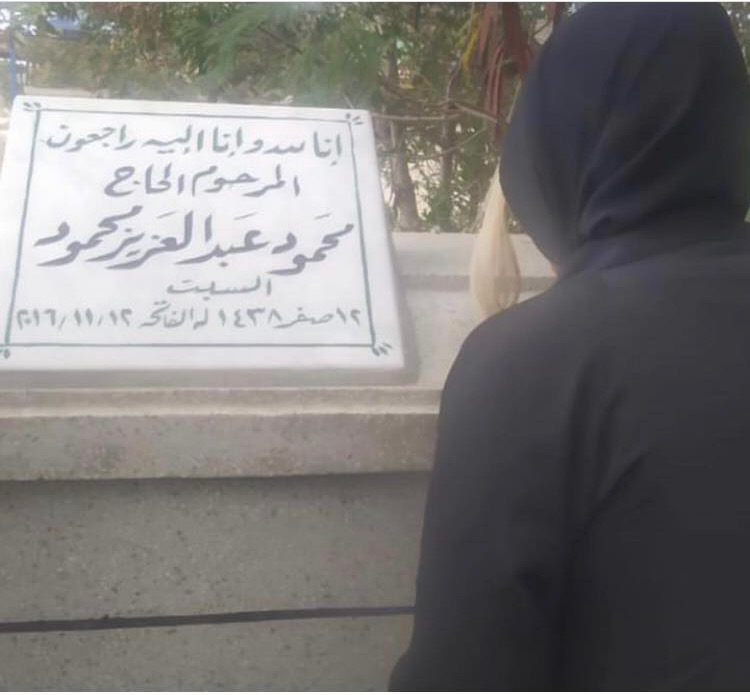 إنا لله وإنا إليه راجعون
المرحوم الحاج
محمود عبد العزيز محمود
السبت
١٢ صفر ١٤٣٨ له الفاتحه ٢٠١٦/١١/١٢